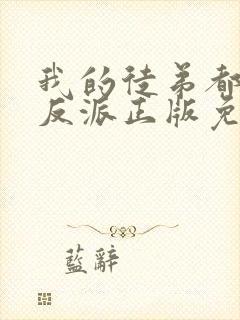 我的徒弟都
反派正版免
藍辭